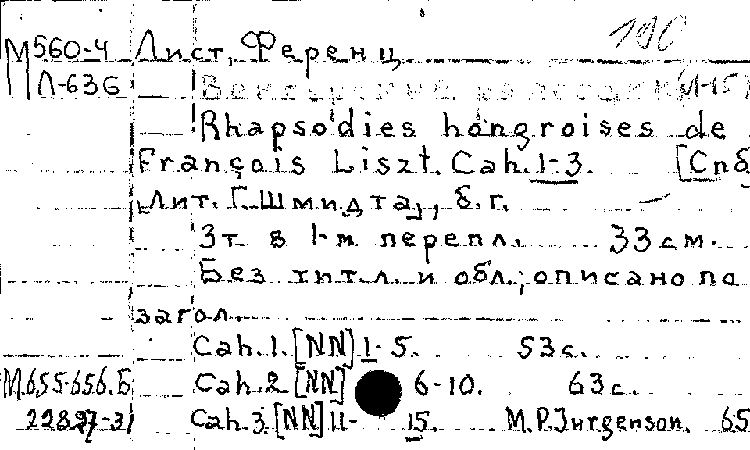 190
М560-4 Лист, Ференц
Л-636 Венгерские рапсодии (1-15)
Rhapsodies hongroises de
François Liszt. Cah. 1-3. [Спб
Лит. Г. Шмидта, б.г.
3т в 1-м перепл. 33см.
Без тит.л. и обл.; описано по
загол.
Cah.1. [NN] 1-5. 53с.
М.655-656.Б Cah.2 [NN] 6-10. 63с.
Cah.3. [NN] 11-15. M.P.Jurgenson. 65